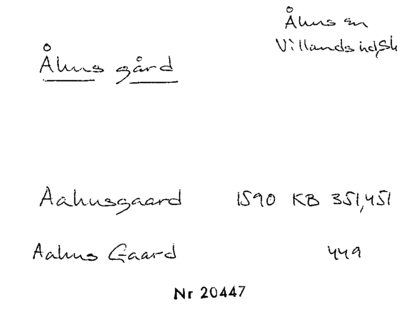 Åhus sn
Villands hd, Sk
Åhus gård
Aahusgaard 1590 KB 351,451
Aahus Gaard 449
Nr 20447